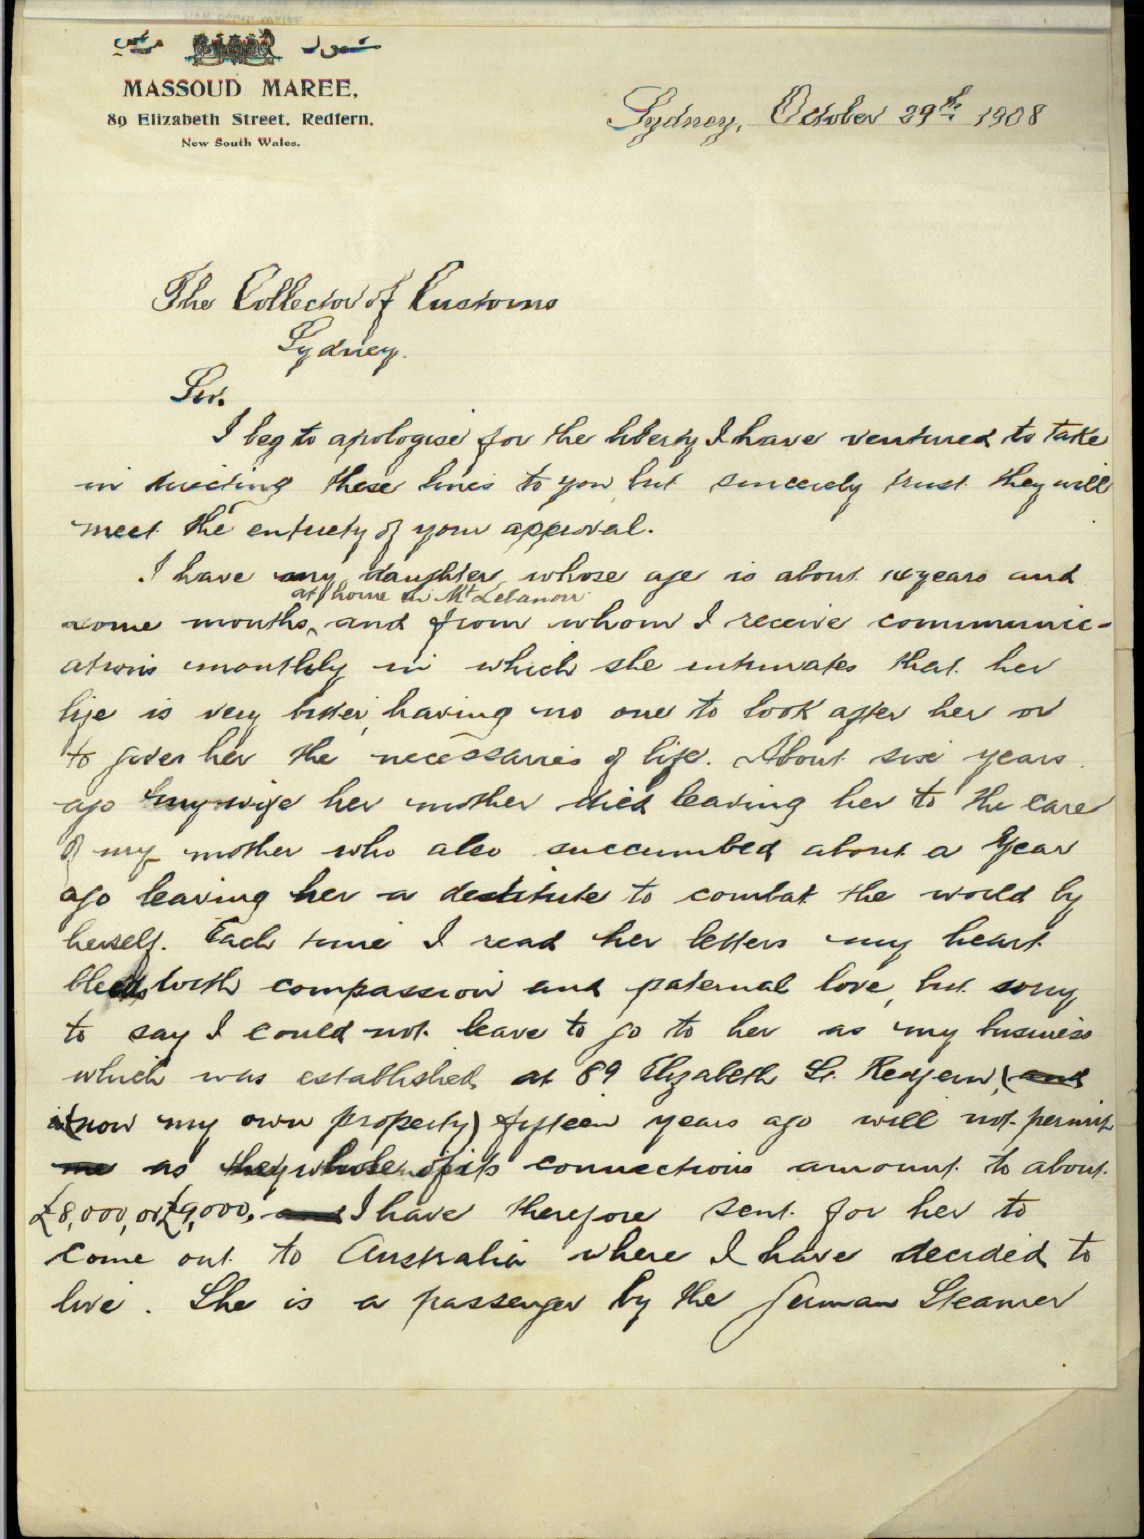 MASSOUD MAREE,
89 Elizabeth Street, Redfern,
New South Wales.
Sydney, October 29th 1908
The Collector of Customs
Sydney.
Sir.
I beg to apologise for the liberty I have ventured to take
in directing these lines to you but sincerely trust they will
meet the entirety of your approval.
I have my daughter, whose age is about 14 years and
at home in Mt Lebanon
some months, and from whom I receive communic-
ations monthly in which she intimates that her
life is very bitter, having no one to look after her or
to give her the necessaries of life. About six years
ago my wife her mother died leaving her to the care
of my mother who also succumbed about a Year
ago leaving her a destitute to combat the world by
herself. Each time I read her letters my heart
bleeds with compassion and paternal love, but sorry
to say I could not leave to go to her as my business
which was established at 89 Elizabeth St. Redfern, and
(now my own property) fifteen years ago will not permit
me as the whole of its connections amount to about
£8,000, or £9,000. and I have therefore sent for her to
come out to Australia where I have decided to
live. She is a passenger by the German Steamer